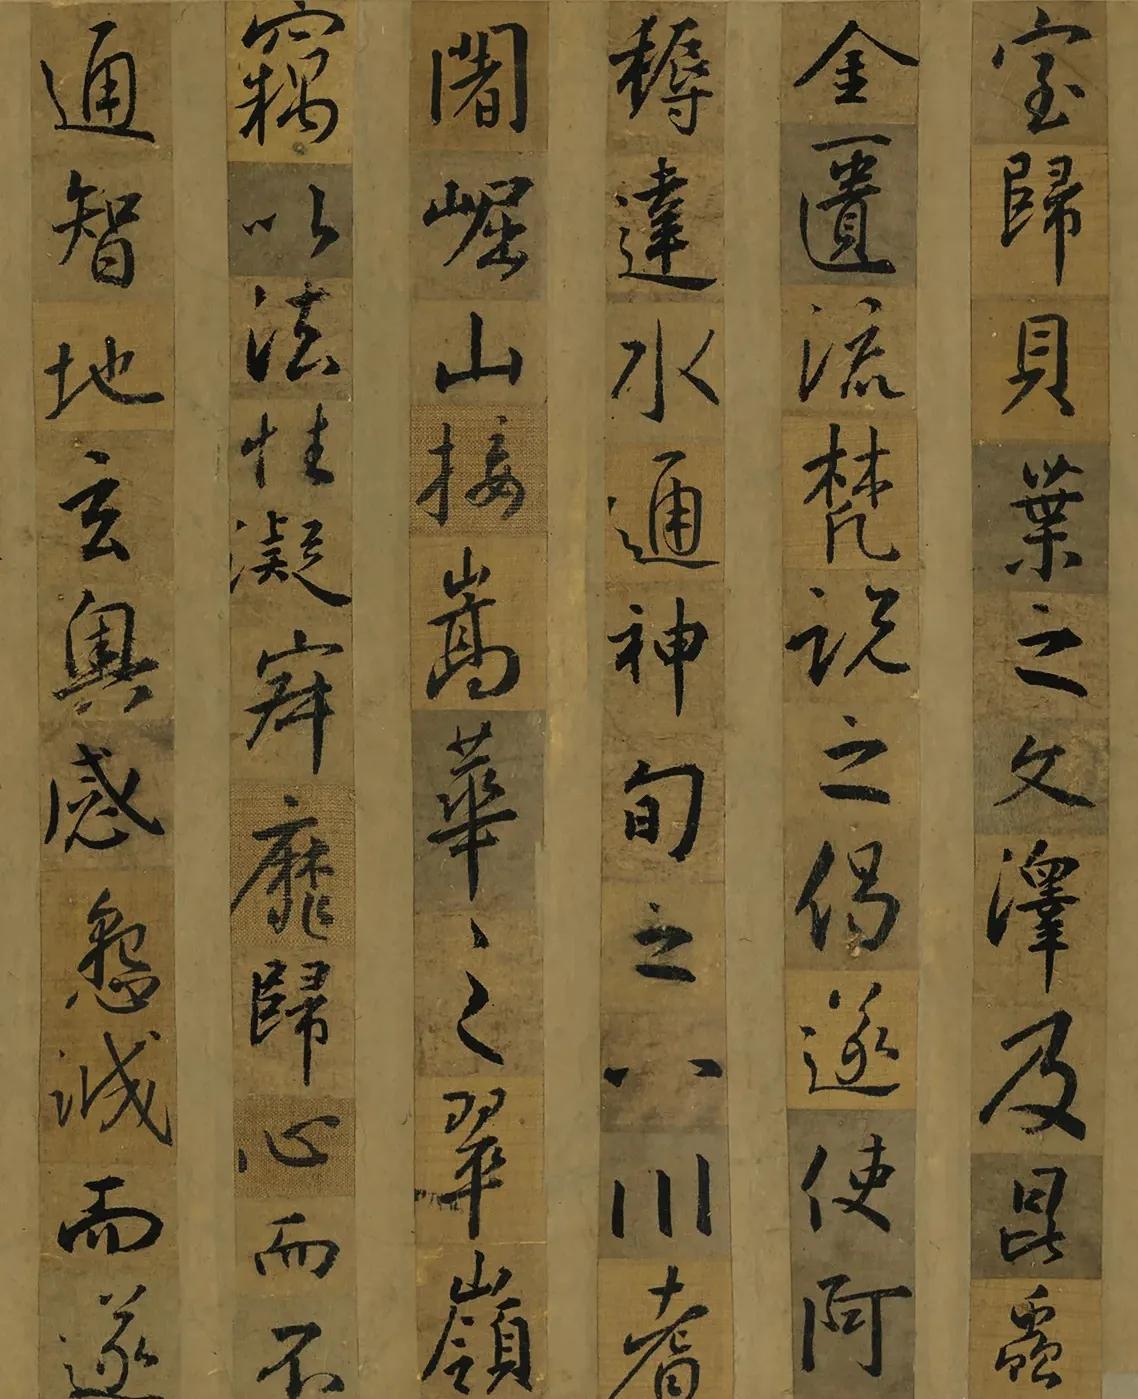 室歸貝葉之文澤及昆蟲
金匱流梵說之偈遂使阿
耨達水通神甸之八川耆
闍崛山接嵩華之翠嶺
竊以法性凝寂靡歸心而不
通智地玄奧感懇誠而遂